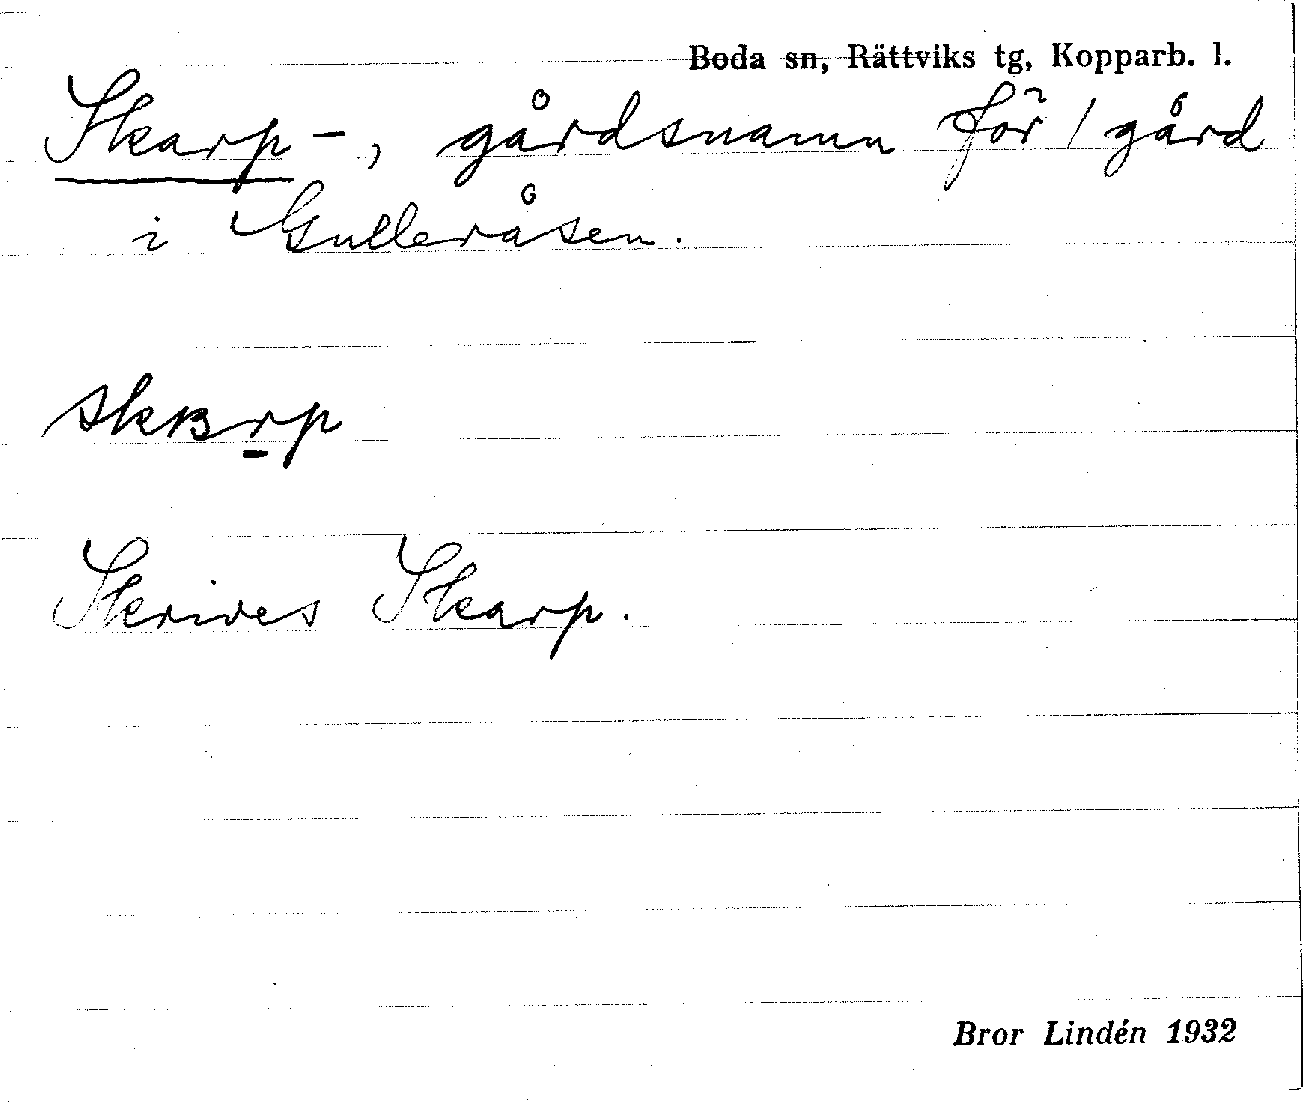 Boda sn, Rättviks tg, Kopparb. l.
Skarp-, gårdsnamn för 1 gård
i Gulleråsen.
Skrives Skarp.
Bror Lindén 1932